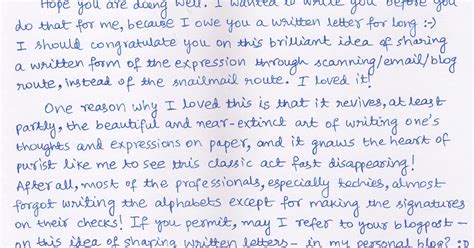 Hope you are doing well. I wanted to write you before you
do that for me, because I owe you a written letter for long :-)
I should congratulate you on this brilliant idea of sharing
a written form of the expression through scanning/email/blog
route, instead of the snailmail route. I loved it!
One reason why I loved this is that it revives, at least
partly, the beautiful and near-extinct art of writing one's
thoughts and expressions on paper, and it gnaws the heart of
purist like me to see this classic act fast disappearing!
After all, most of the professionals, especially techies, almost
forgot writing the alphabets except for making the signatures
on their checks! If you permit, may I refer to your blogpost –
on this idea of sharing written letters – in my personal blog? :)